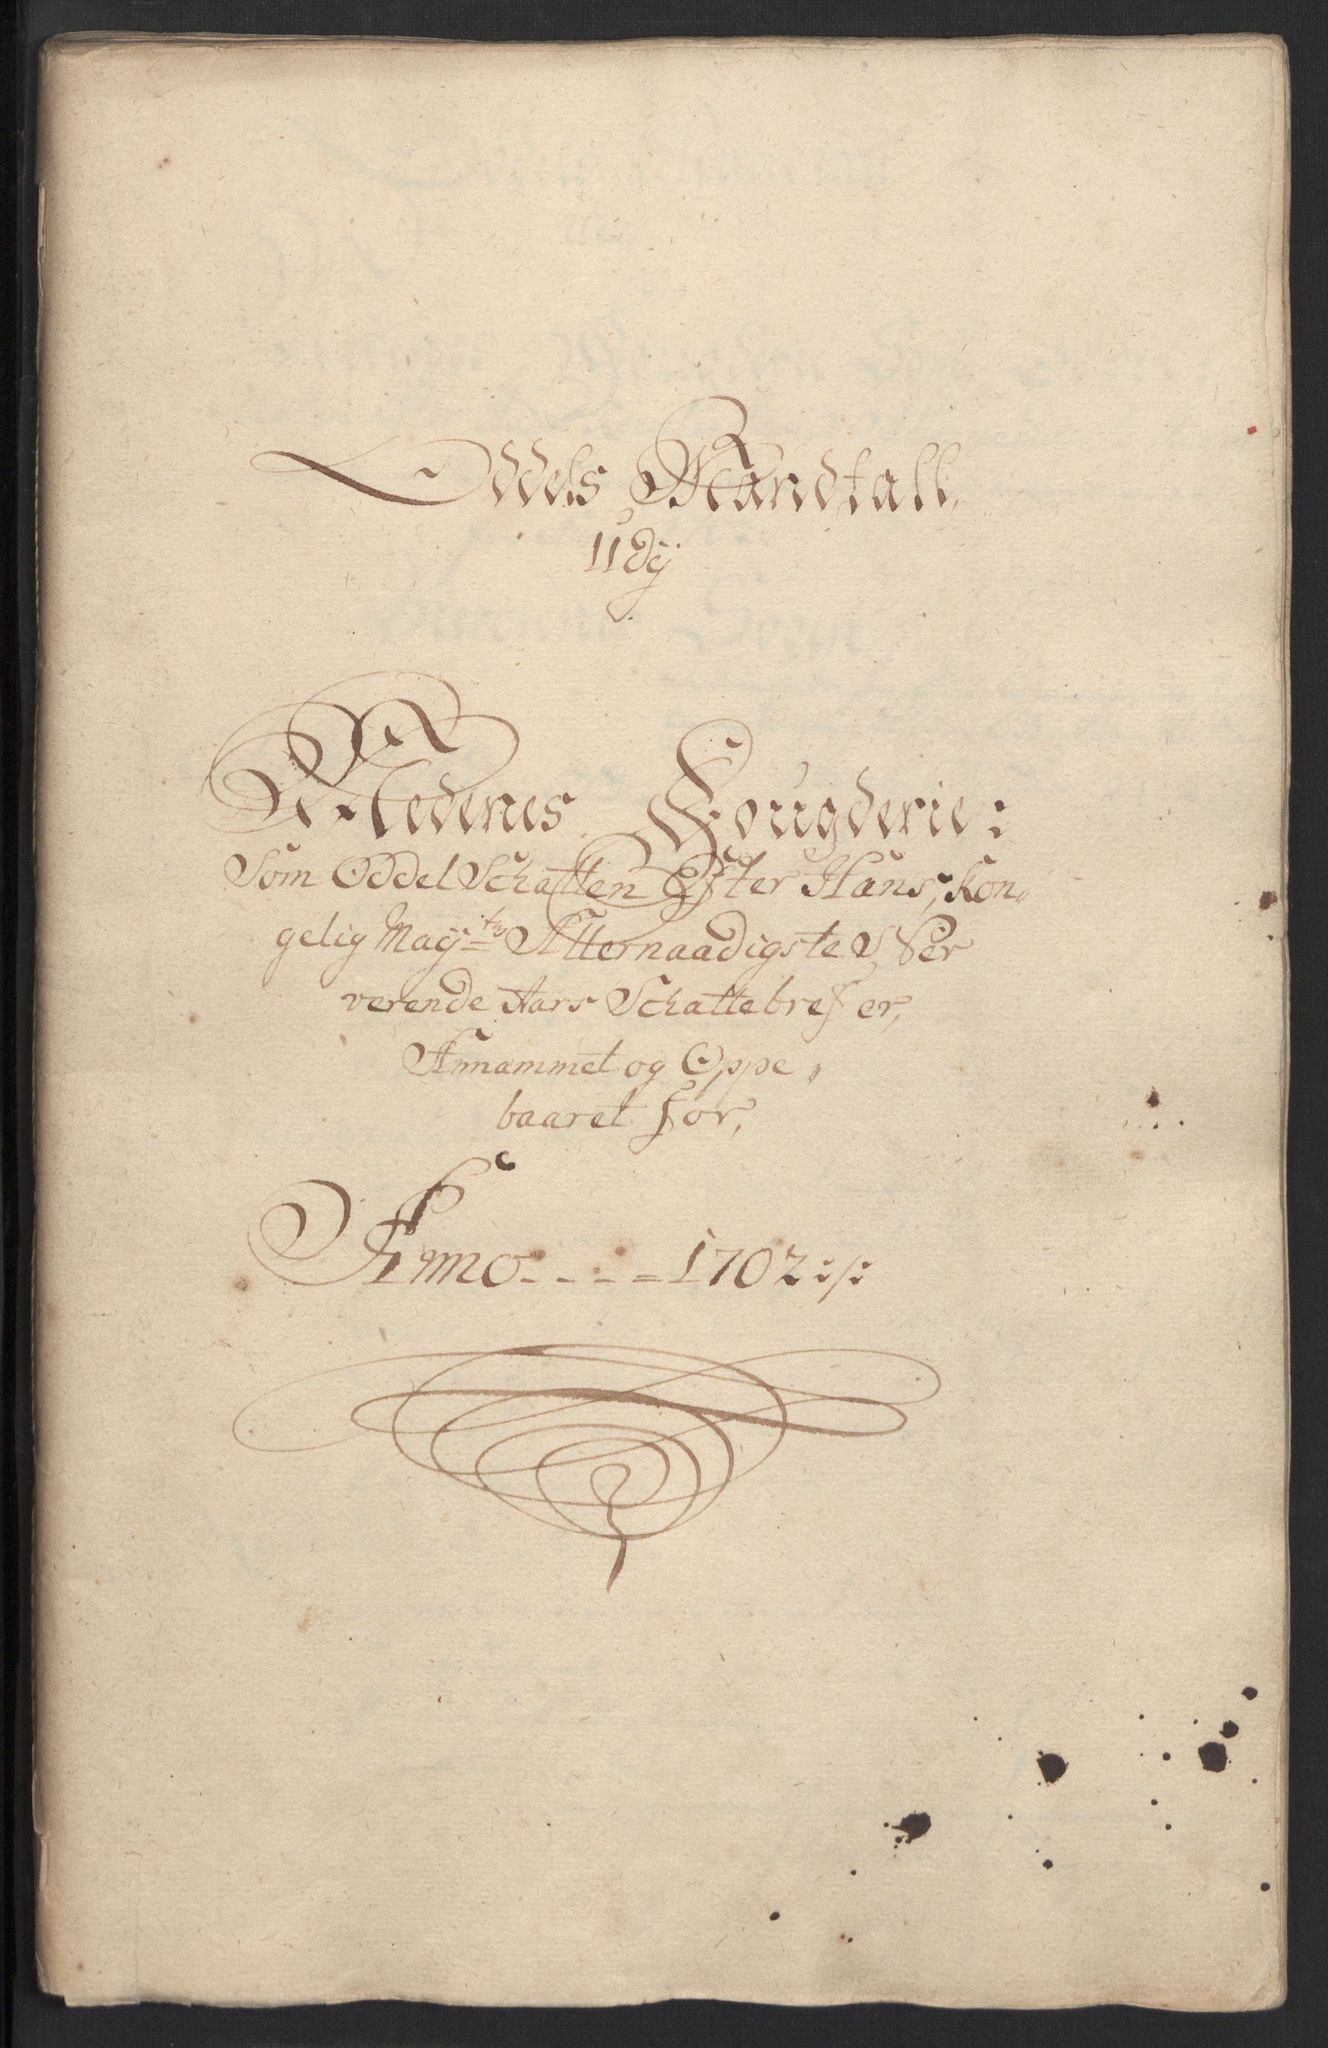 Oddels Mandtall
Udj
Nedenes Fougderie:
Som Oddel Schatten Efter Hans, Kon,
gelig Maÿ:ts Allernaadigste Per
verende Aars Schattebrefver,
Annammet og Oppe,
baaret for,
Anno - - - - = 1702:/: